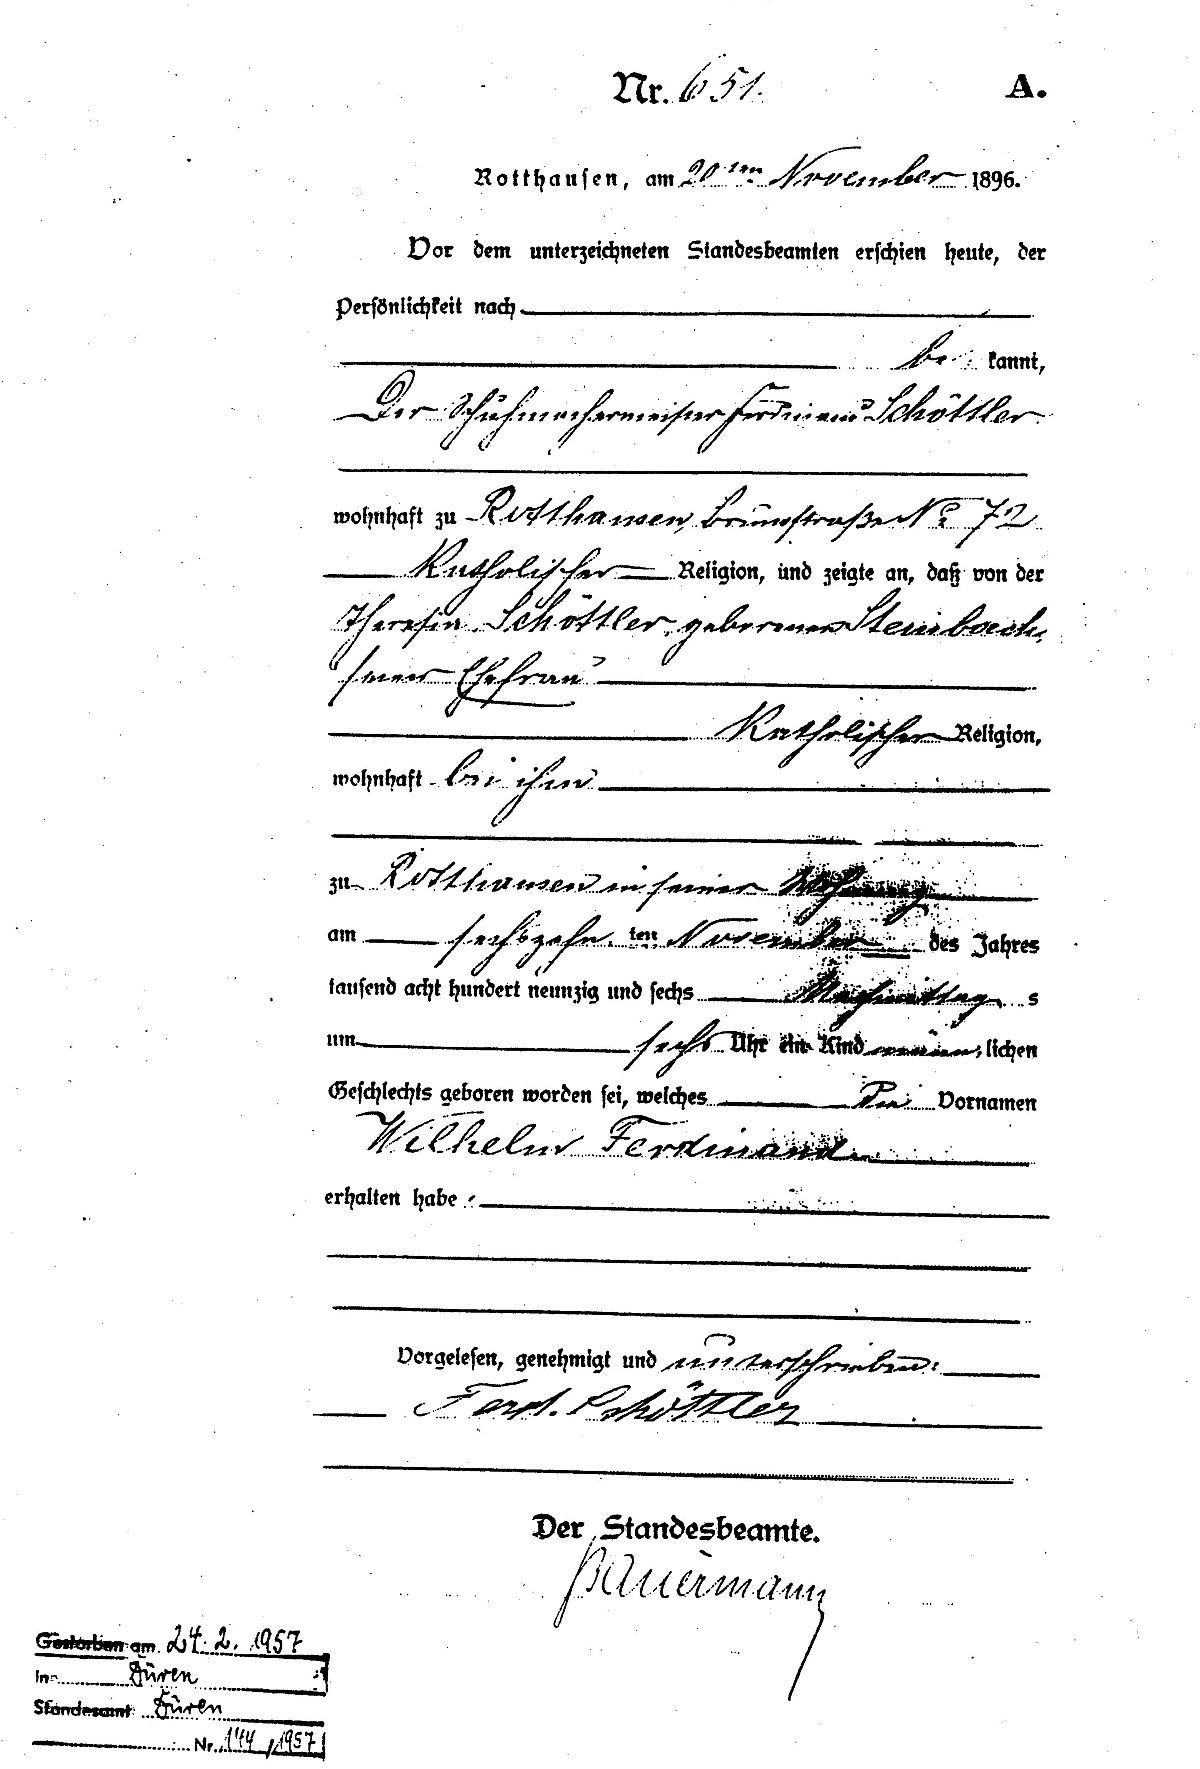 Nr. 651. A.
Rotthausen, am 20ten November 1896.
Vor dem unterzeichneten Standesbeamten erschien heute, der
Persönlichkeit nach
be kannt,
Der Schuhmachermeister Ferdinand Schöttler
wohnhaft zu Rotthausen, Brünostraße No 72
Katholischer Religion, und zeigte an, daß von der
Theresia Schöttler, geborenen Steinbach,
seiner Ehefrau
Katholischer Religion,
wohnhaft bei ihm
zu Rotthausen in seiner Wohnung
am sechszehn ten November des Jahres
tausend acht hundert neunzig und sechs Nachmittag s
um sechs Uhr ein Kind männ lichen
Geschlechts geboren worden sei, welches die Vornamen
Wilhelm Ferdinand
erhalten habe.
Vorgelesen, genehmigt und unterschrieben:
Ferd. Schöttler
Der Standesbeamte.
Bauermann
Gestorben am 24.2.1957
in Düren
Standesamt Düren
Nr. 144/1957